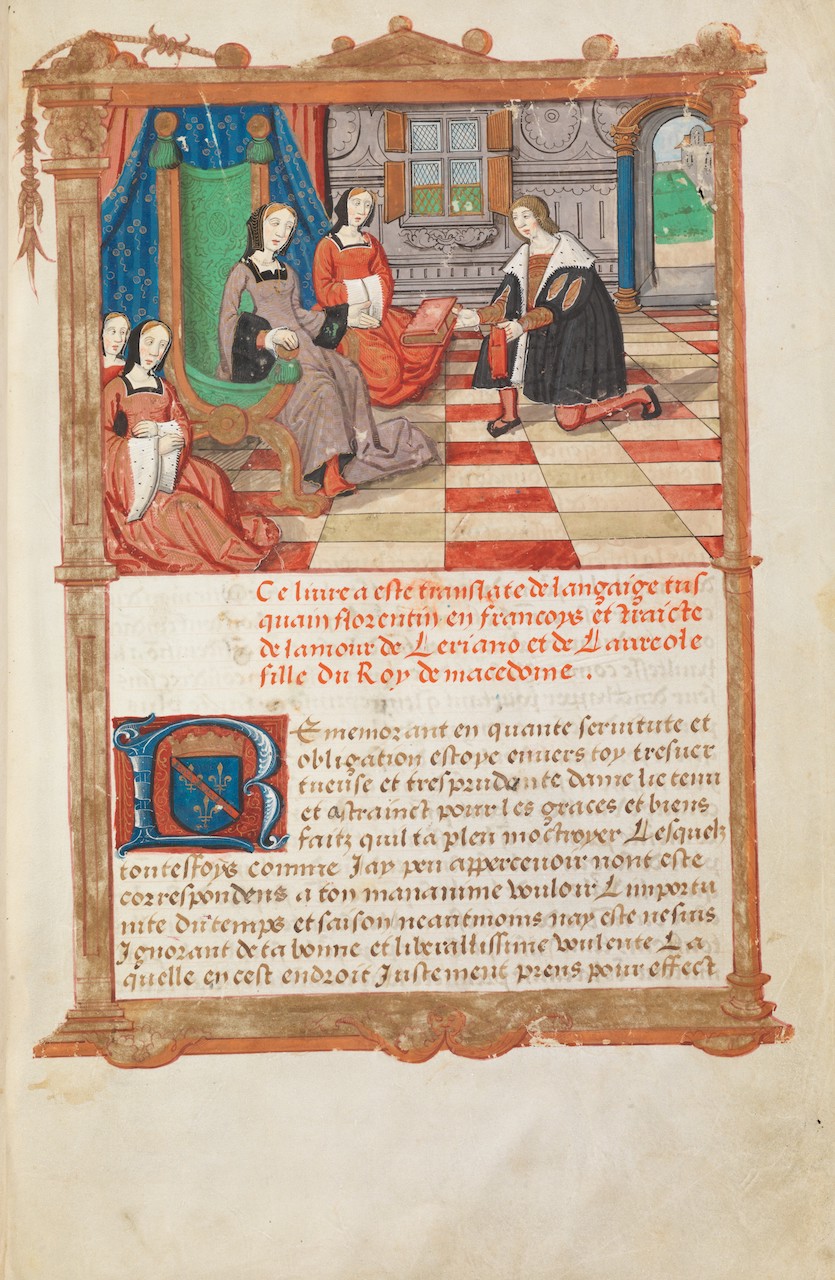 Ce liure a este translate de langaige tus
quain florentin en francoys et traicte
de lamour de Leriano et de Laureole
fille du Roy de macedoine .
REmemorant en quante seruitute et
obligation estoye enuers toy tresuer
tueuse et tresprudente dame lie tenu
et astrainct pour les graces et biens
faitz quil ta pleu moctroyer Lesquelz
toutesfoys comme Jay peu appercevoir nont este
correspondens a ton manamme vouloir Limportu
nite du temps et saison neantmoins nay este ne suis
Jgnorant de ta bonne et liberallissime voulente La
quelle en cest endroit Justement prens pour effect